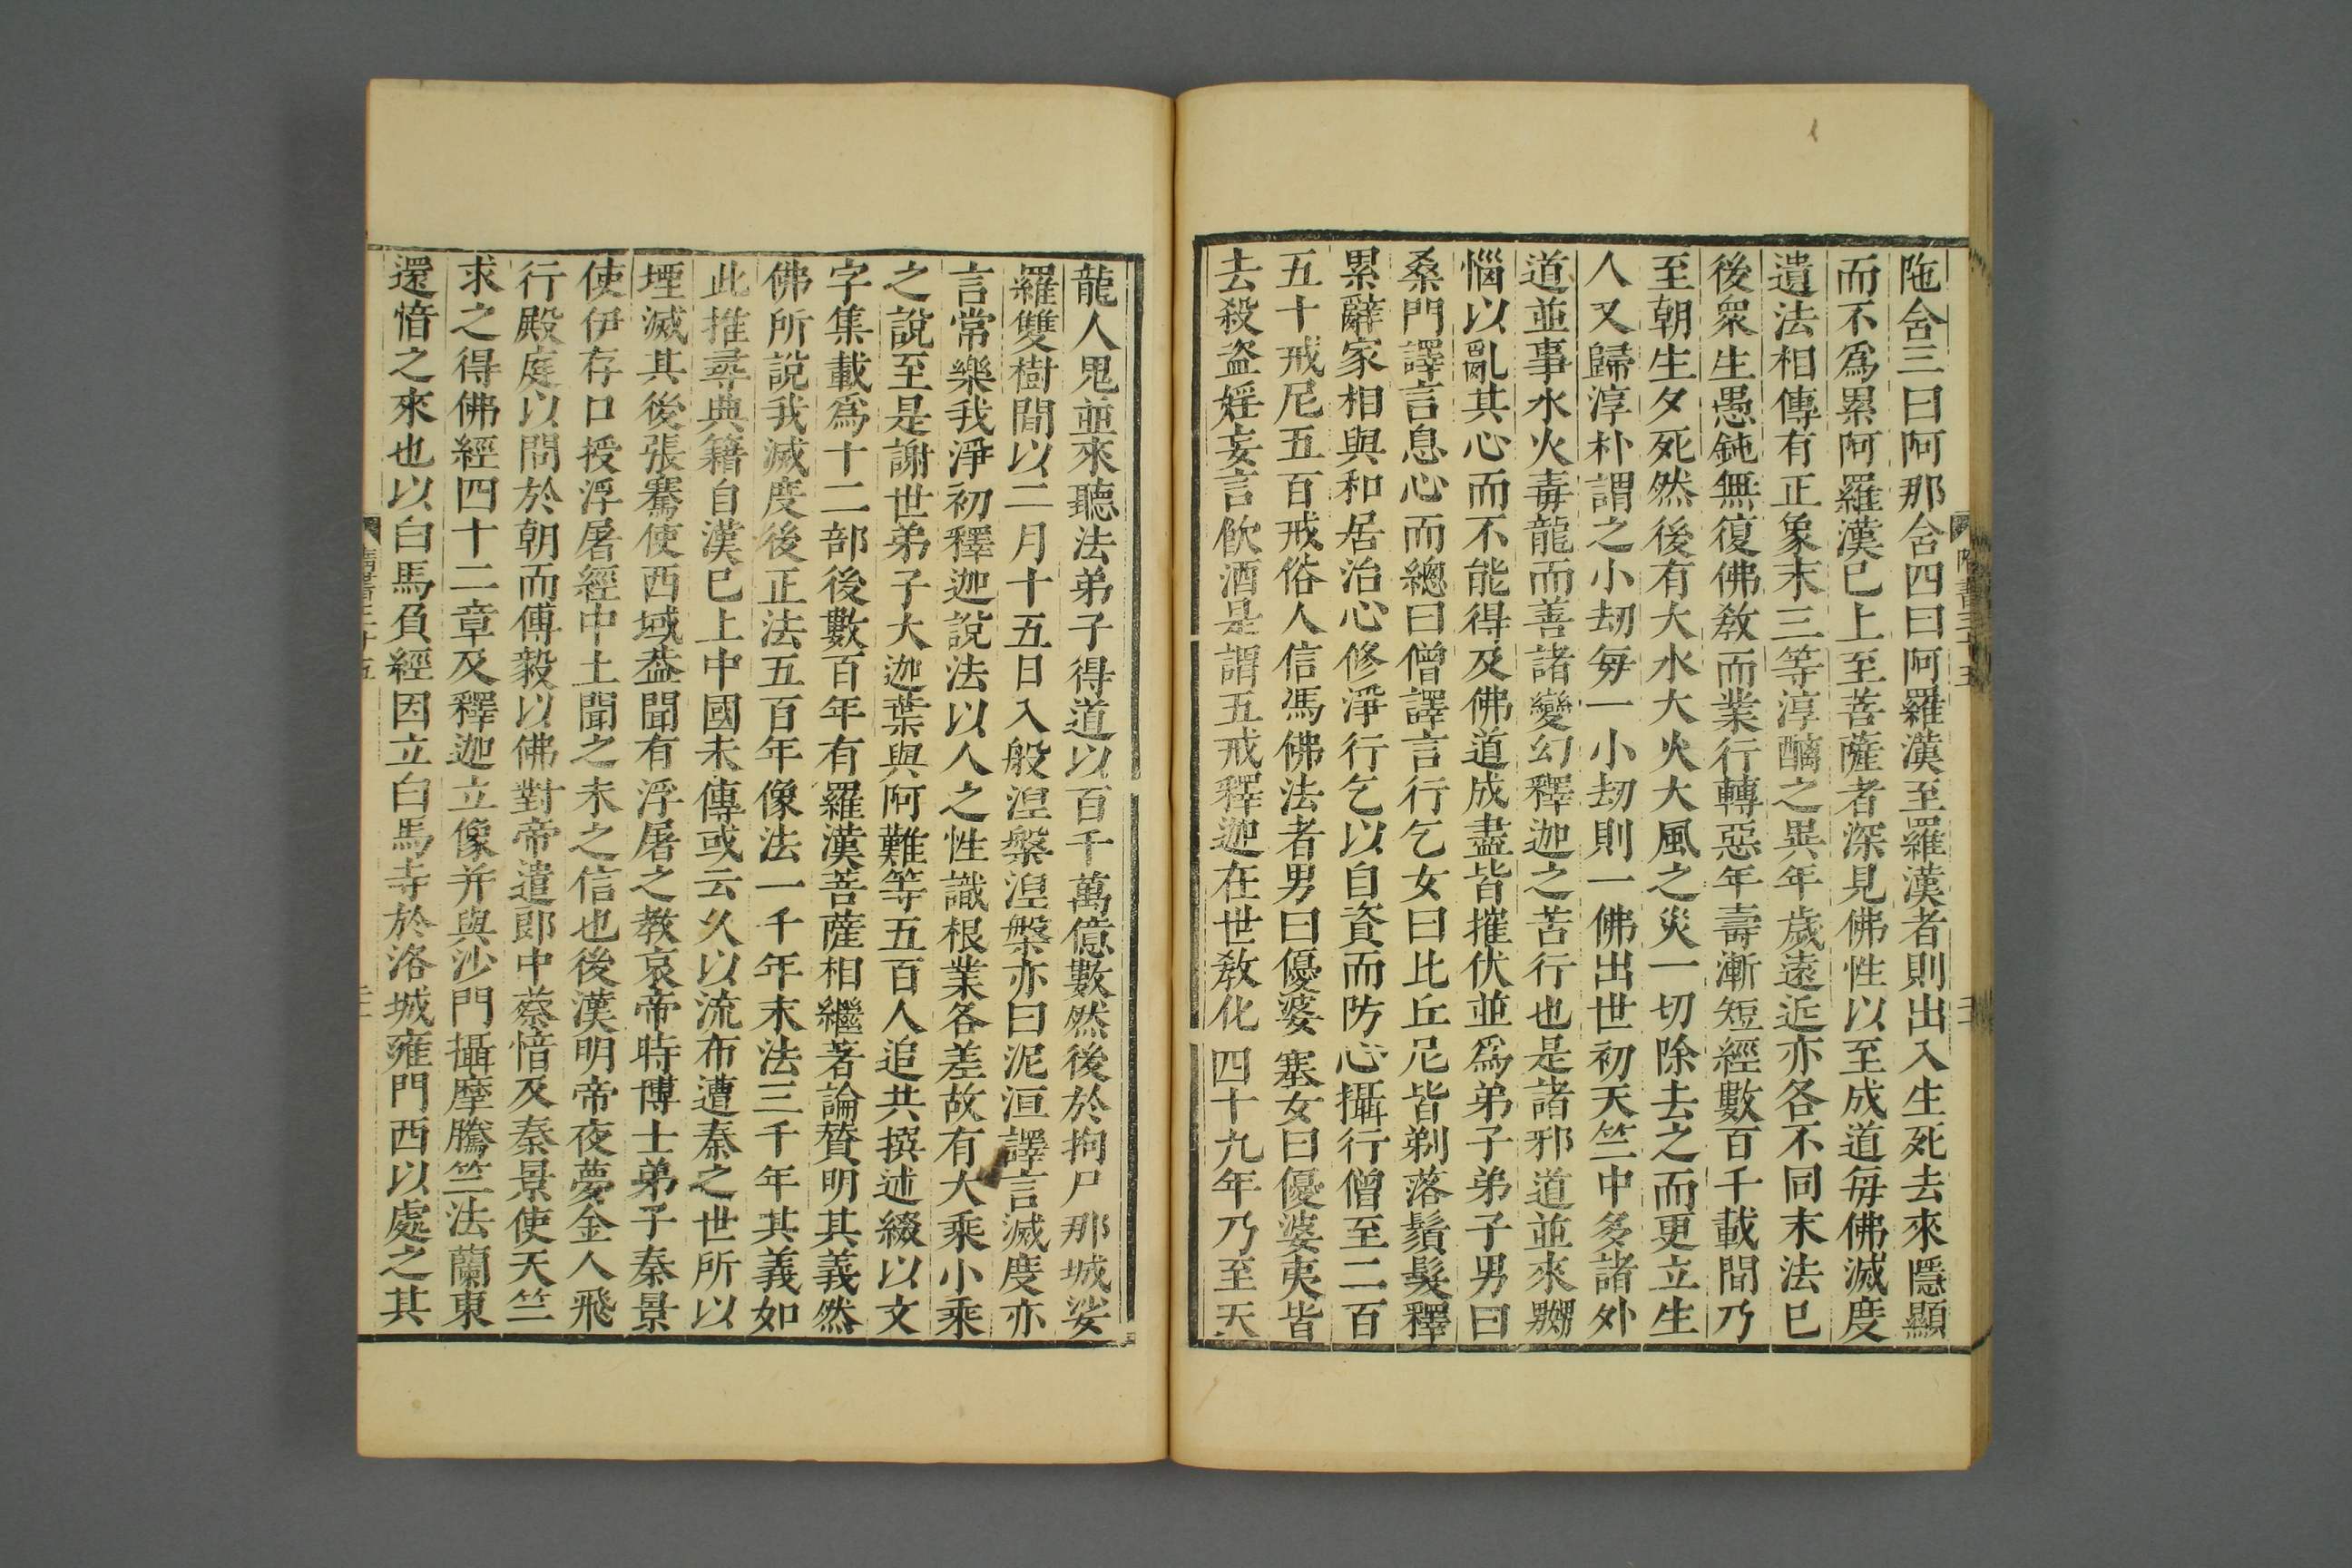 陁舍三曰阿那舍四曰阿羅漢至羅漢者則出入生死去來隱顯
而不爲累阿羅漢已上至菩薩者深見佛性以至成道每佛滅度
遺法相傳有正象末三等淳醨之異年歲遠近亦各不同末法已
後衆生愚鈍無復佛教而業行轉惡年壽漸短經數百千載間乃
至朝生夕死然後有大水大火大風之災一切除去之而更立生
人又歸淳朴謂之小劫每一小劫則一佛出世初天竺中多諸外
道並事水火毒龍而善諸變幻釋迦之苦行也是諸邪道並來嬲
惱以亂其心而不能得及佛道成盡皆摧伏並爲弟子弟子男曰
桑門譯言息心而總曰僧譯言行乞女曰比丘尼皆剃落鬚髮釋
累辭家相與和居治心修淨行乞以自資而防心攝行僧至二百
五十戒尼五百戒俗人信馮佛法者男曰優婆塞女曰優婆夷皆
去殺盜婬妄言飲酒是謂五戒釋迦在世敎化四十九年乃至天
龍人鬼並來聽法弟子得道以百千萬億數然後於拘尸那城娑
羅雙樹間以二月十五日入般湼槃湼槃亦曰泥洹譯言滅度亦
言常樂我淨初釋迦說法以人之性識根業各差故有大乘小乘
之說至是謝世弟子大迦葉與阿難等五百人追共撰述綴以文
字集載爲十二部後數百年有羅漢菩薩相繼著論贊明其義然
佛所說我滅度後正法五百年像法一千年末法三千年其義如
此推尋典籍自漢已上中國未傳或云久以流布遭秦之世所以
堙滅其後張騫使西域葢聞有浮屠之教哀帝時博士弟子秦景
使伊存口授浮屠經中土聞之未之信也後漢明帝夜夢金人飛
行殿庭以問於朝而傅毅以佛對帝遣郎中蔡愔及秦景使天竺
求之得佛經四十二章及釋迦立像并與沙門攝摩騰竺法蘭東
還愔之來也以白馬負經因立白馬寺於洛城雍門西以處之其